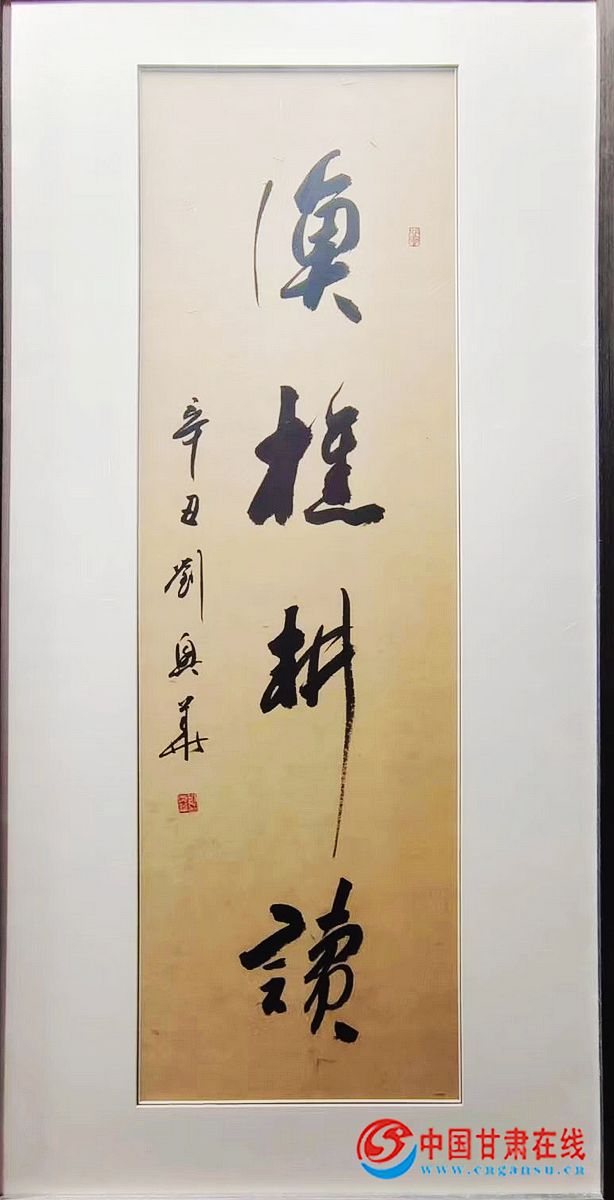 漁樵耕讀
辛丑劉興華
中国甘肃在线
www.cngansu.cn